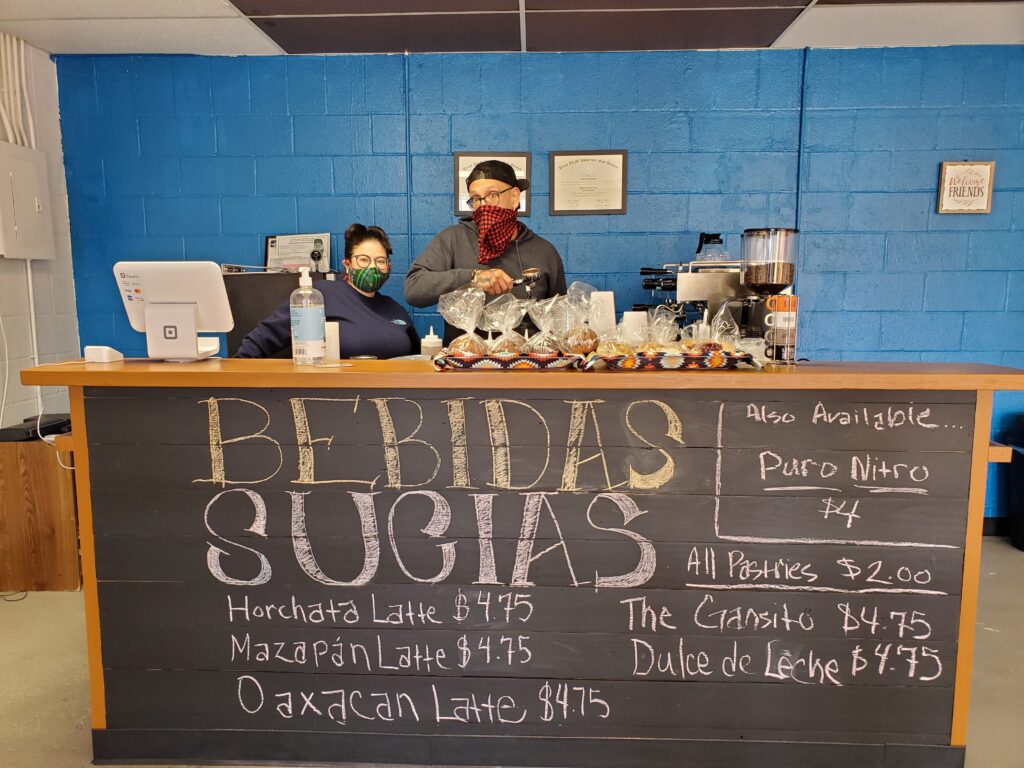 Welcome
FRIENDS
Square
VISA
BEBIDAS
SUCIAS
Also Available...
Puro Nitro
$4
All Pastries $2.00
Horchata Latte $4.75
Mazapán Latte $4.75
Oaxacan Latte $4.75
The Gansito $4.75
Dulce de Leche $4.75